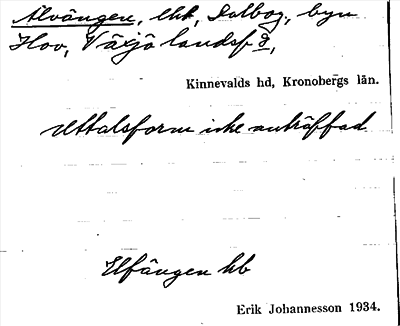 Älvängen, lht, Dalbog, byn
Hov, Växjö landsf d,
Kinnevalds hd, Kronobergs län.
Uttalsform icke anträffad
Elfängen hb
Erik Johannesson 1934.